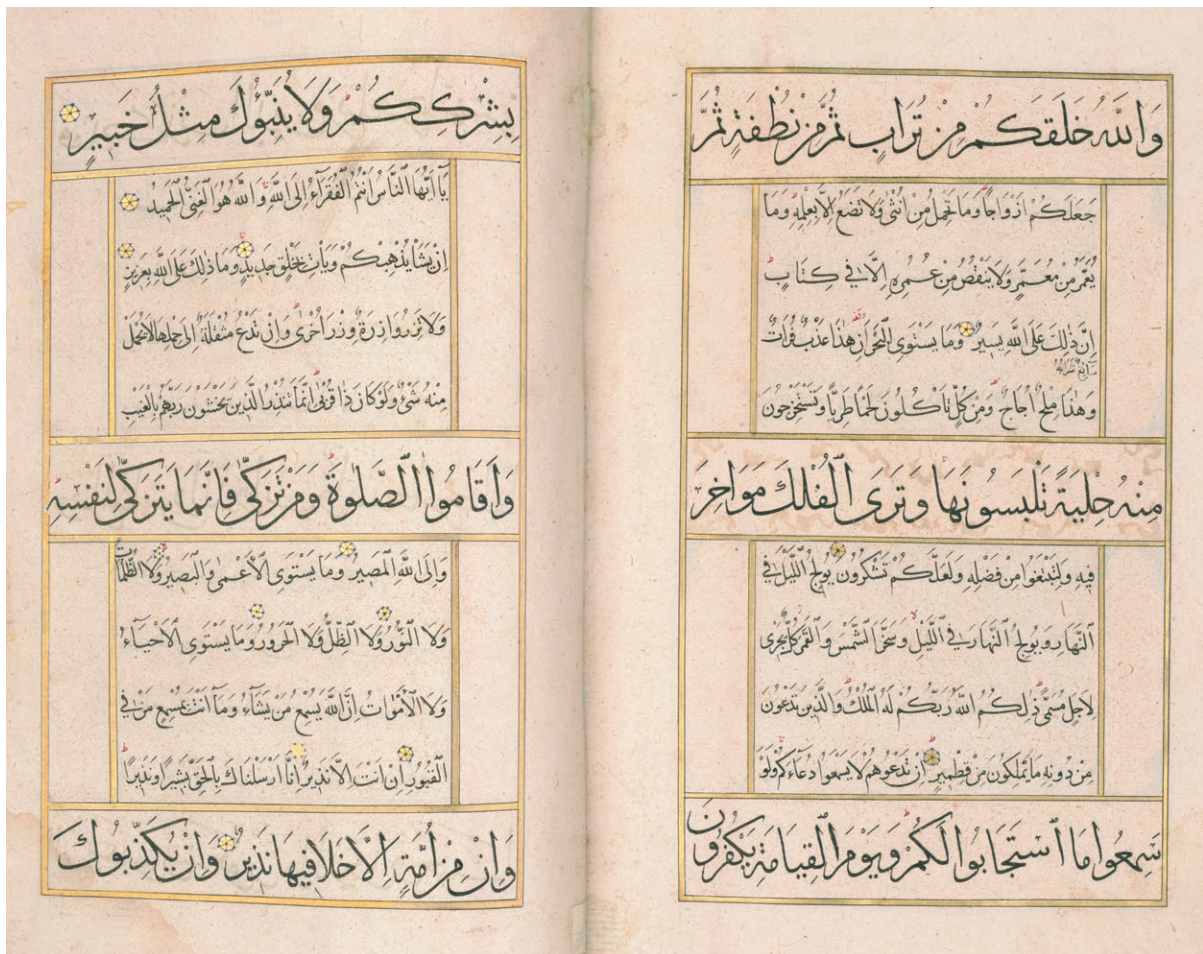 وَاللَّهُ خَلَقَكُمْ مِنْ تُرَابٍ ثُمَّ مِنْ نُطْفَةٍ ثُمَّ
جَعَلَكُمْ اَزْوَاجًا وَمَا تَحْمِلُ مِنْ اُنْثٰى وَلَا تَضَعُ اِلَّا بِعِلْمِهِ وَمَا
يُعَمَّرُ مِنْ مُعَمَّرٍ وَلَا يُنْقَصُ مِنْ عُمُرِهِ اِلَّا فِي كِتَابٍ
اِنَّ ذٰلِكَ عَلَى اللَّهِ يَسِيرٌ وَمَا يَسْتَوِي الْبَحْرَانِ هٰذَا عَذْبٌ فُرَاتٌ
سَآئِغٌ شَرَابُهُ
وَهٰذَا مِلْحٌ اُجَاجٌ وَمِنْ كُلٍّ تَاْكُلُونَ لَحْمًا طَرِيًّا وَتَسْتَخْرِجُونَ
مِنْهُ حِلْيَةً تَلْبَسُونَهَا وَتَرَى الْفُلْكَ مَوَاخِرَ
فِيهِ وَلِتَبْتَغُوا مِنْ فَضْلِهِ وَلَعَلَّكُمْ تَشْكُرُونَ يُولِجُ اللَّيْلَ فِي
النَّهَارِ وَيُولِجُ النَّهَارَ فِي اللَّيْلِ وَسَخَّرَ الشَّمْسَ وَالْقَمَرَ كُلٌّ يَجْرِى
لِاَجَلٍ مُسَمًّى ذٰلِكُمُ اللَّهُ رَبُّكُمْ لَهُ الْمُلْكُ وَالَّذِينَ تَدْعُونَ
مِنْ دُونِهِ مَا يَمْلِكُونَ مِنْ قِطْمِيرٍ اِنْ تَدْعُوهُمْ لَا يَسْمَعُوا دُعَآءَكُمْ وَلَوْ
سَمِعُوا مَا اسْتَجَابُوا لَكُمْ وَيَوْمَ الْقِيَامَةِ يَكْفُرُونَ
بِشِرْكِكُمْ وَلَا يُنَبِّئُكَ مِثْلُ خَبِيرٍ
يَآ اَيُّهَا النَّاسُ اَنْتُمُ الْفُقَرَآءُ اِلَى اللَّهِ وَاللَّهُ هُوَ الْغَنِىُّ الْحَمِيدُ
اِنْ يَشَاْ يُذْهِبْكُمْ وَيَاْتِ بِخَلْقٍ جَدِيدٍ وَمَا ذٰلِكَ عَلَى اللَّهِ بِعَزِيزٍ
وَلَا تَزِرُ وَازِرَةٌ وِزْرَ اُخْرٰى وَاِنْ تَدْعُ مُثْقَلَةٌ اِلٰى حِمْلِهَا لَا يُحْمَلْ
مِنْهُ شَىْءٌ وَلَوْ كَانَ ذَا قُرْبٰى اِنَّمَا تُنْذِرُ الَّذِينَ يَخْشَوْنَ رَبَّهُمْ بِالْغَيْبِ
وَاَقَامُوا الصَّلٰوةَ وَمَنْ تَزَكّٰى فَاِنَّمَا يَتَزَكّٰى لِنَفْسِهِ
وَاِلَى اللَّهِ الْمَصِيرُ وَمَا يَسْتَوِى الْاَعْمٰى وَالْبَصِيرُ وَلَا الظُّلُمَاتُ
وَلَا النُّورُ وَلَا الظِّلُّ وَلَا الْحَرُورُ وَمَا يَسْتَوِى الْاَحْيَآءُ
وَلَا الْاَمْوَاتُ اِنَّ اللَّهَ يُسْمِعُ مَنْ يَشَآءُ وَمَآ اَنْتَ بِمُسْمِعٍ مَنْ فِي
الْقُبُورِ اِنْ اَنْتَ اِلَّا نَذِيرٌ اِنَّآ اَرْسَلْنَاكَ بِالْحَقِّ بَشِيرًا وَنَذِيرًا
وَاِنْ مِنْ اُمَّةٍ اِلَّا خَلَا فِيهَا نَذِيرٌ وَاِنْ يُكَذِّبُوكَ